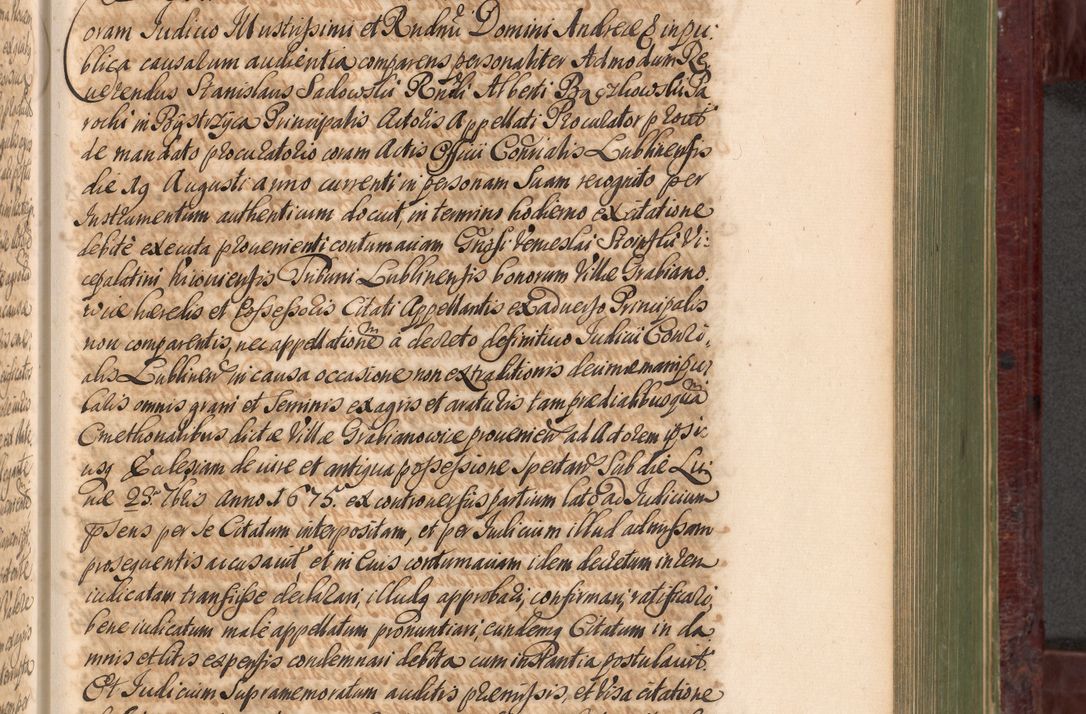 oram Iudicio Illustrissimi et Rndmi Domini Andreæ E in pu:
blica causarum audientia comparens personaliter Admodum Re
verendus Stanislaus Sadowski Rndi Alberti Bączkowski Pa
rochi in Bystrzyca Principalis Actoris Appellati Procurator prout
de mandato procuratorio coram Actis Officii Consialis Lublinensis
die 19 Augusti anno currenti in personam Suam recognito per
Instrumentum authenticum docuit, in termino hodierno ex citatione
debitè executa provenienti contumaciam Gnosi Venceslai Stoinski Vi:
cepalatini Kijoviensis Tribuni Lublinensis bonorum Villæ Grabiano
wice hæredis et Possessoris Citati Appellantis ex adverso Principalis
non comparentis, nec appellationem à decreto definitivo Iudicii Consi,
alis Lublinen in causa occasione non extraditionis decimæ manipu
laris omnis grani et Seminis ex agris et araturis tam prædialibus quam
Cmethonalibus dictæ Villæ Grabianowice provenien ad Actorem ipsi
usq Ecclesiam de iure et antiqua possessione spectan Sub die Lu
næ 23 7bris anno 1675. ex controversiis partium lato ad Iudicium
psens per se Citatum interpositam, et per Iudicium illud admissam
prosequentis accusavit, et in Eius contumaciam idem decretum in rem
iudicatam transiisse declarari, illudq approbari, confirmari, ratificari,
bene iudicatum malè appellatum pronuntiari, eundemq Citatum in da
mnis et litis expensis condemnari debita cum instantia postulavit.
Et Iudicium Supramemoratum auditis præmissis, et visa citatione